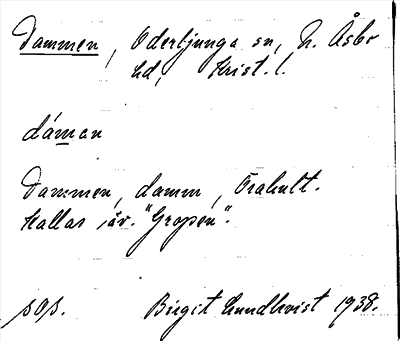 Dammen, Oderljunga sn, N. Åsbo
hd, Krist. l.
dáman
Dammen, damm, Trahult.
Kallas äv. "Gropen".
sos. Birgit Lundkvist 1938.